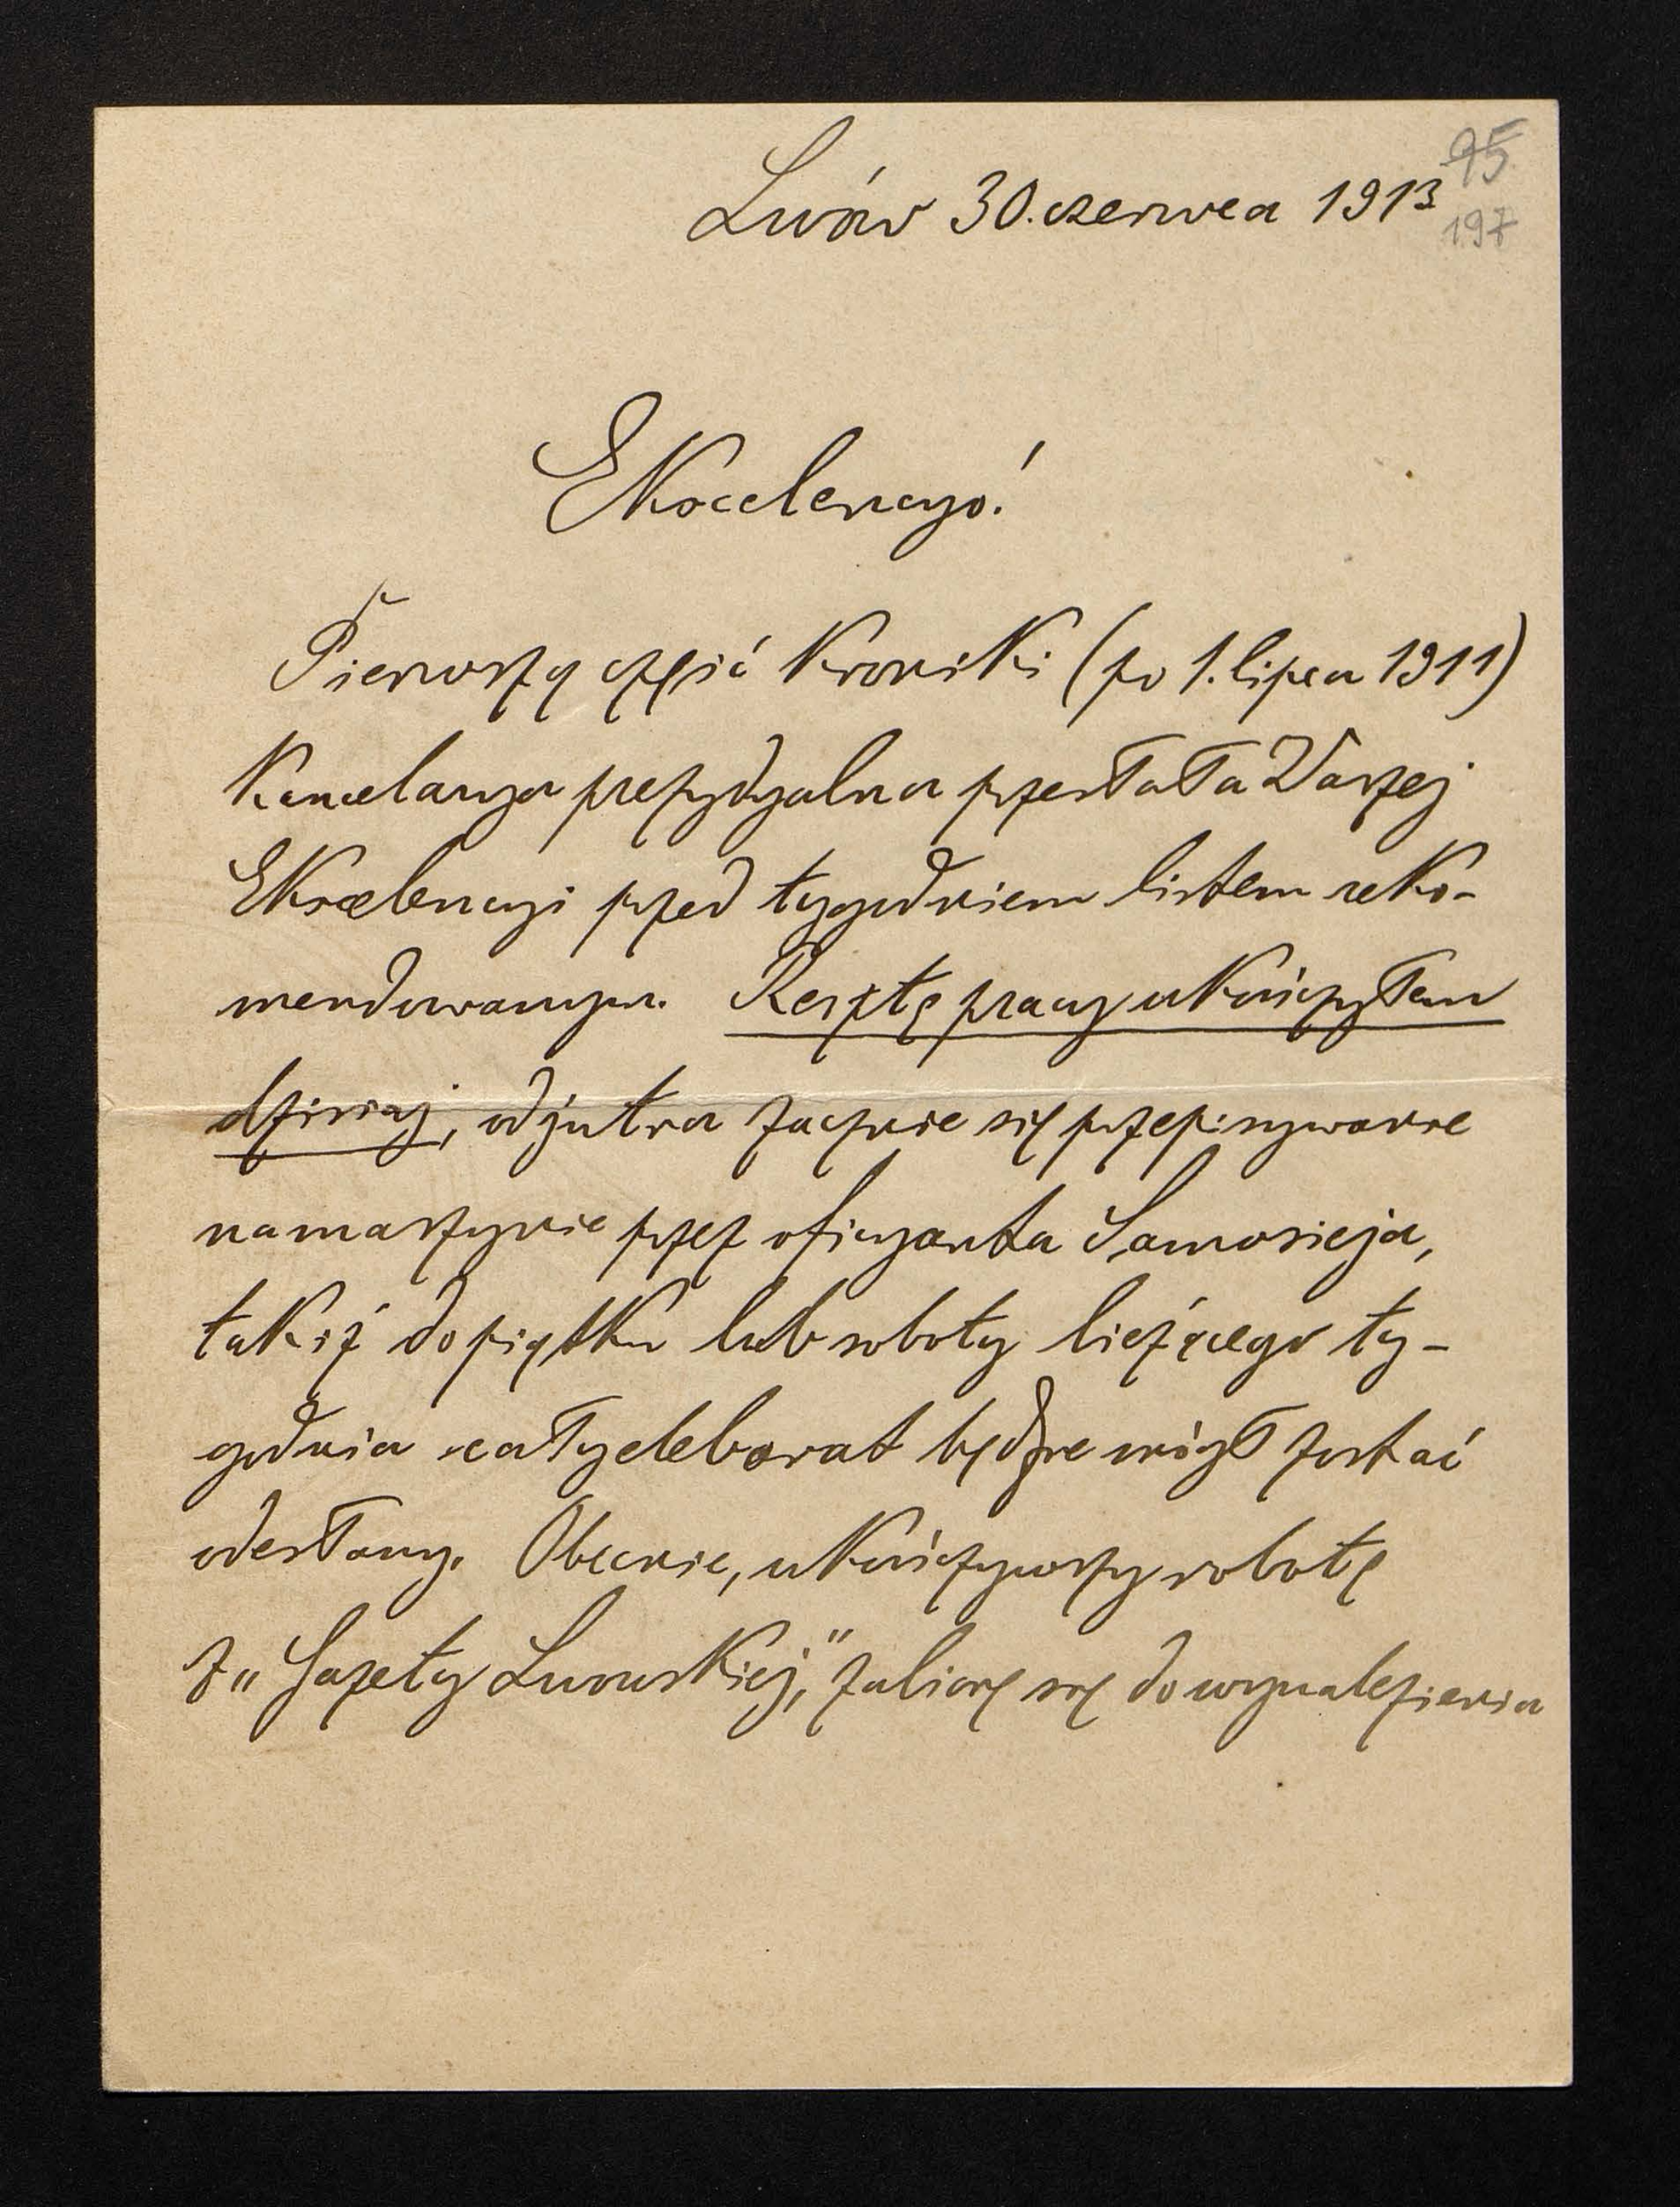 95
Lwów 30. czerwca 1913
197
Ekscelencyo!
Pierwszą część Kroniki (po 1. lipca 1911)
Kancelarya prezydyalna przesłała Waszej
Ekscelencyi przed tygodniem listem reko-
mendowanym. Resztę pracy ukończyłem
dzisiaj, od jutra zacznie się przepisywanie
na maszynie przez oficyanta Samosieja,
tak iż do piątku lub soboty bieżącego ty-
godnia cały elaborat będzie mógł zostać
odesłany. Obecnie, ukończywszy robotę
z „Gazety Lwowskiej," zabiorę się do wynalezienia